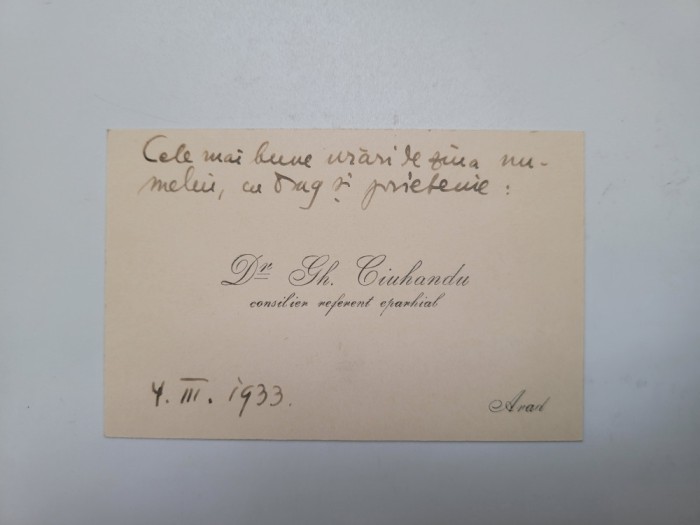 Cele mai bune urări de ziua nu-
melui, cu drag și prietenie:
Dr Gh. Ciuhandu
consilier referent eparhial
4. III. 1933.
Arad